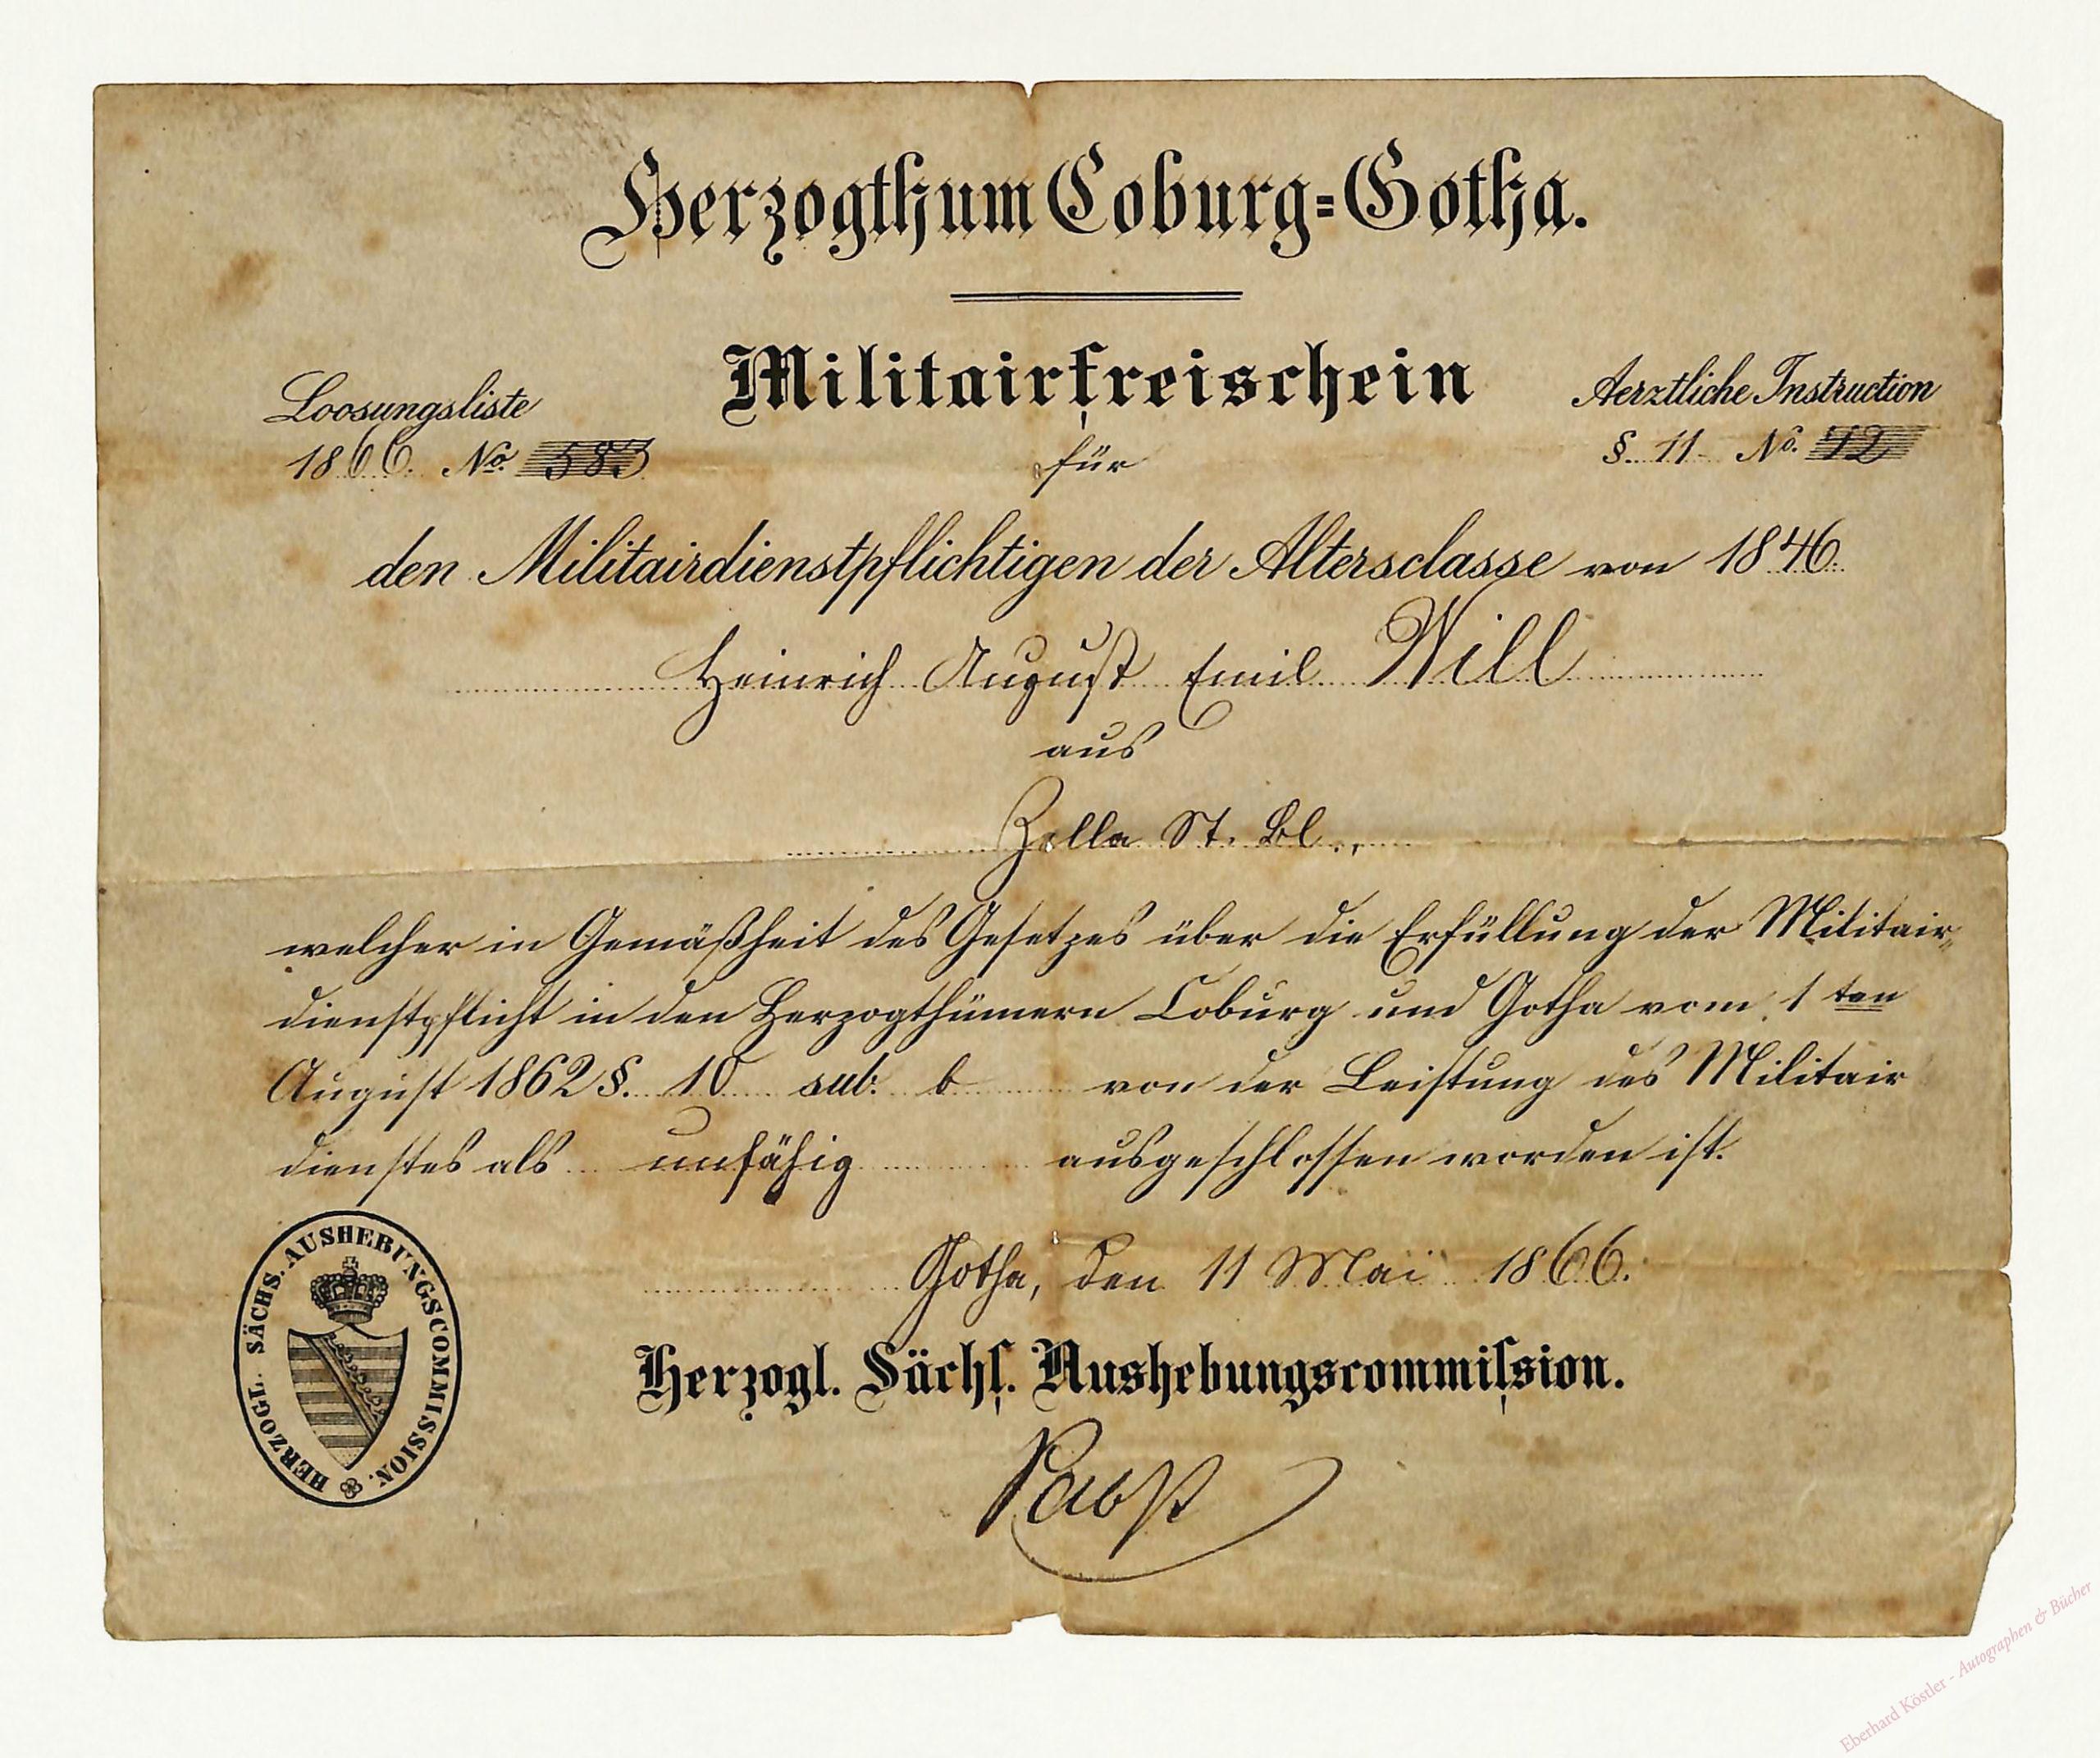 Herzogthum Coburg=Gotha.
Militairfreischein
Loosungsliste
1866. No. 583
Aerztliche Instruction
§. 11 No. 42
für
den Militairdienstpflichtigen der Altersclasse von 1846.
Heinrich August Emil Will
aus
Zella St. Bl.,
welcher in Gemäßheit des Gesetzes über die Erfüllung der Militair-
dienstpflicht in den Herzogthümern Coburg und Gotha vom 1ten
August 1862 §. 10 sub. b von der Leistung des Militair
dienstes als unfähig ausgeschlossen worden ist.
Gotha, den 11 Mai 1866.
Herzogl. Sächs. Aushebungscommission.
Pabst
HERZOGL. SÄCHS. AUSHEBUNGSCOMMISSION.
Eberhard Köstler - Autographen & Bücher